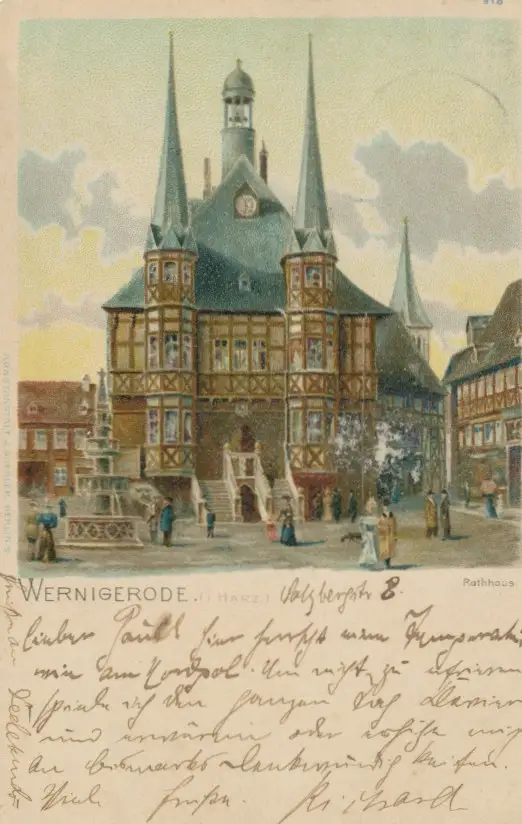 918
WERNIGERODE. (I. HARZ.) Salzbergstr 8.
Rathhaus
lieber Paul! hier herrscht eine Temperatur
wie am Nordpol. Um nicht zu erfrieren
spiele ich den ganzen Tag Clavier
und erwärme oder erhitze mich
an bismarks Denkwürdigkeiten.
Viele Grüße. Richard
Grüße an